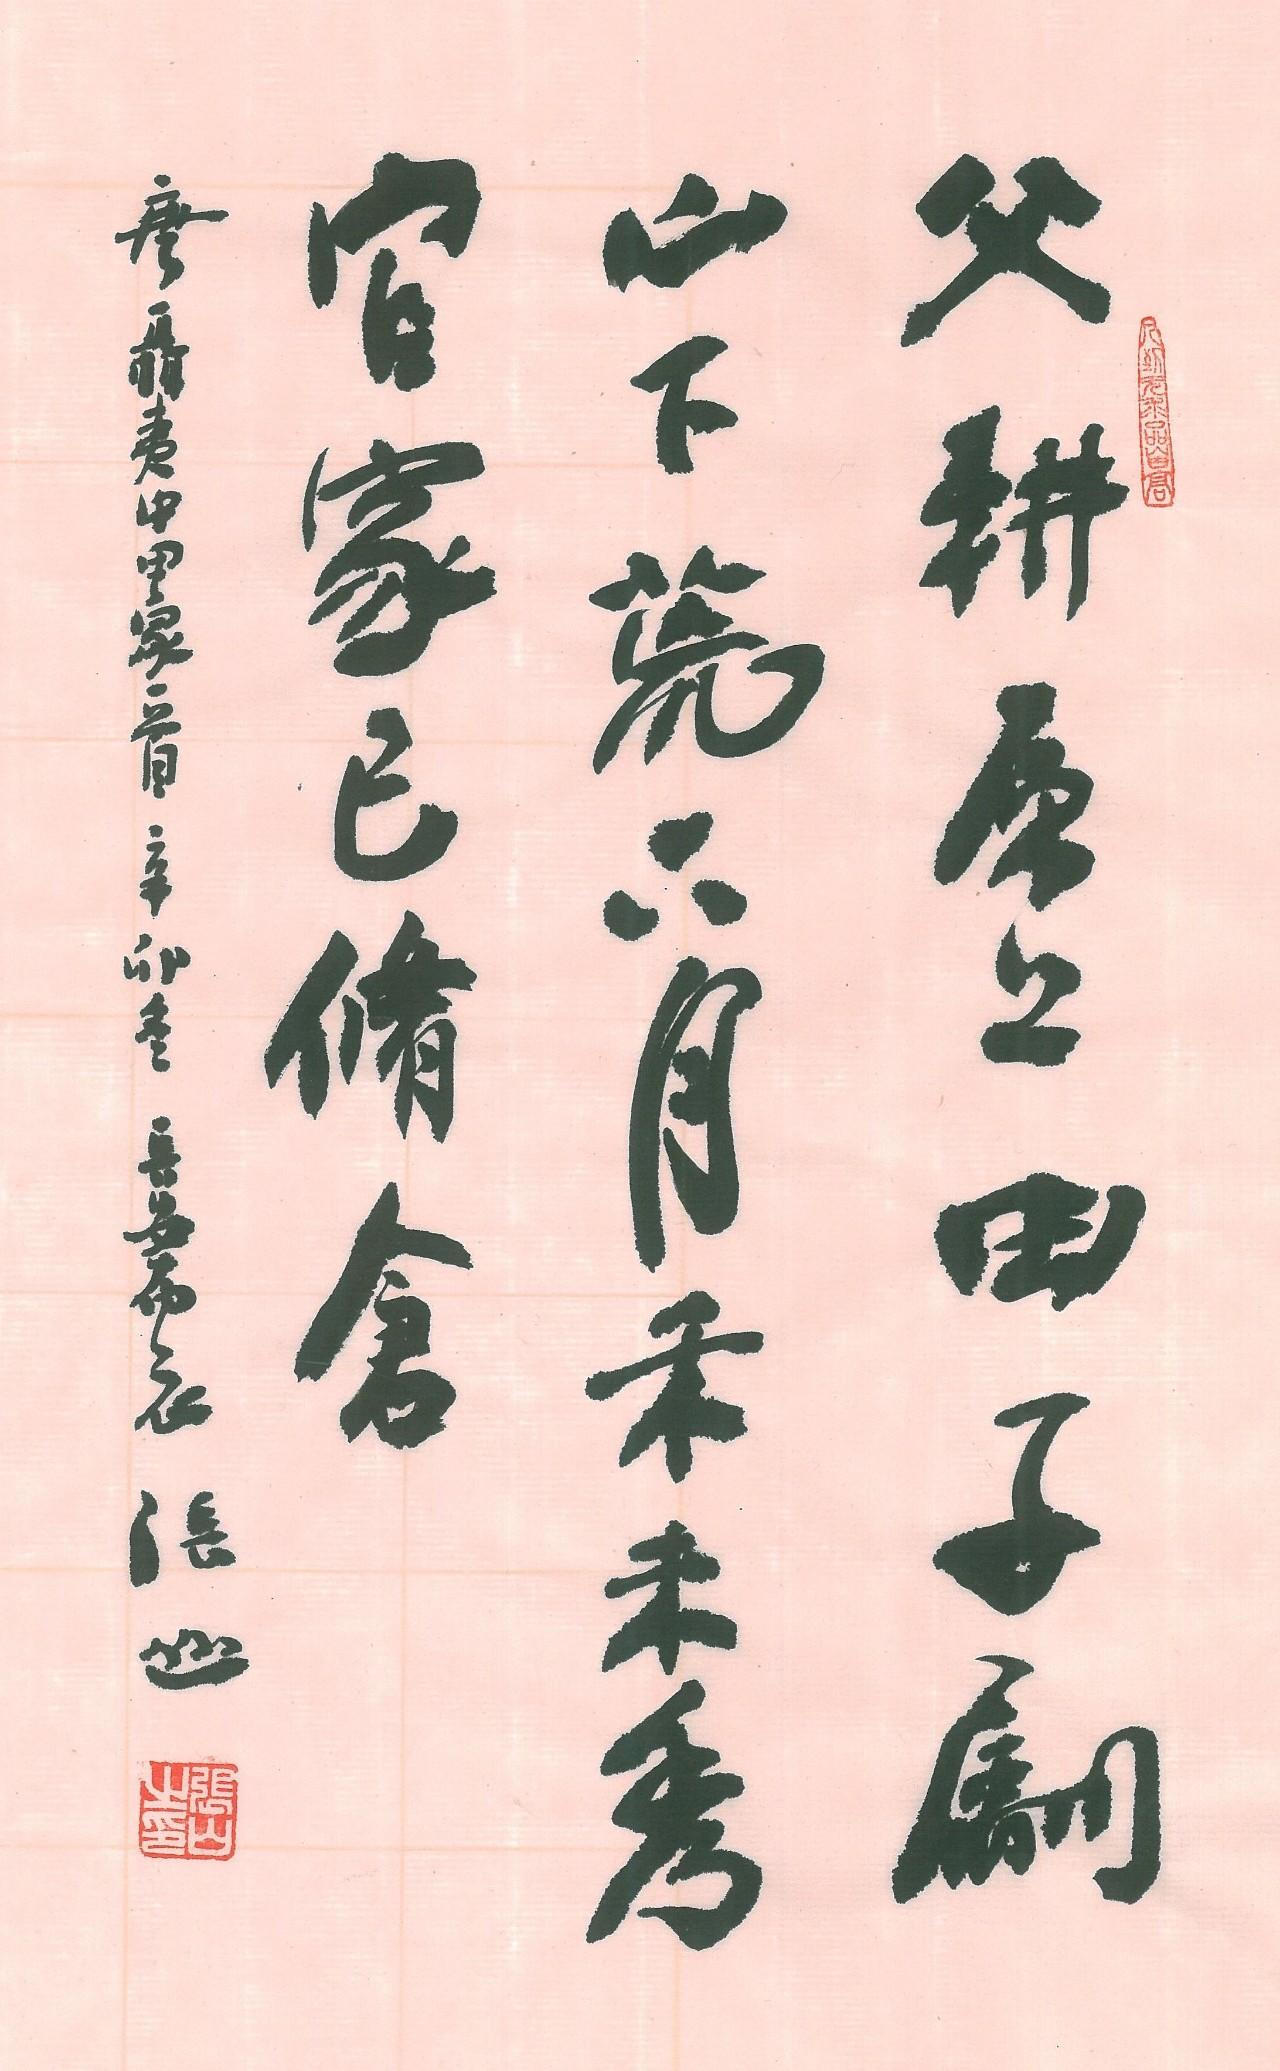 父耕原上田子劚
山下荒六月禾未秀
官家已脩倉
唐聶夷中田家一首 辛卯冬 長安布衣 張山
張山之印